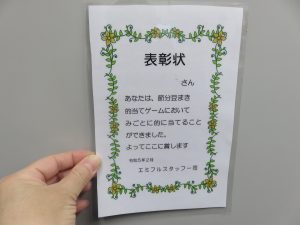 表彰状
さん
あなたは、節分豆まき
的当てゲームにおいて
みごとに的に当てること
ができました。
よってここに賞します
令和5年2月
エミフルスタッフ一同